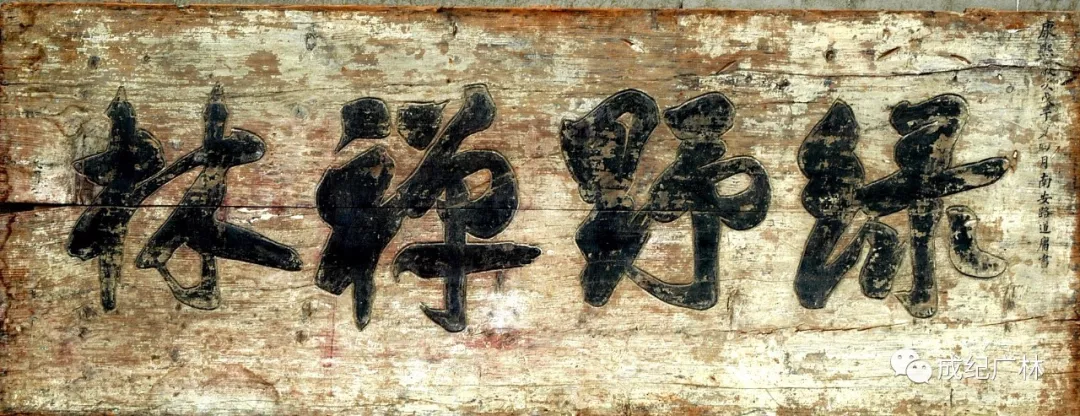 康熙年月南安道庸書
綠野禪林
成纪广林